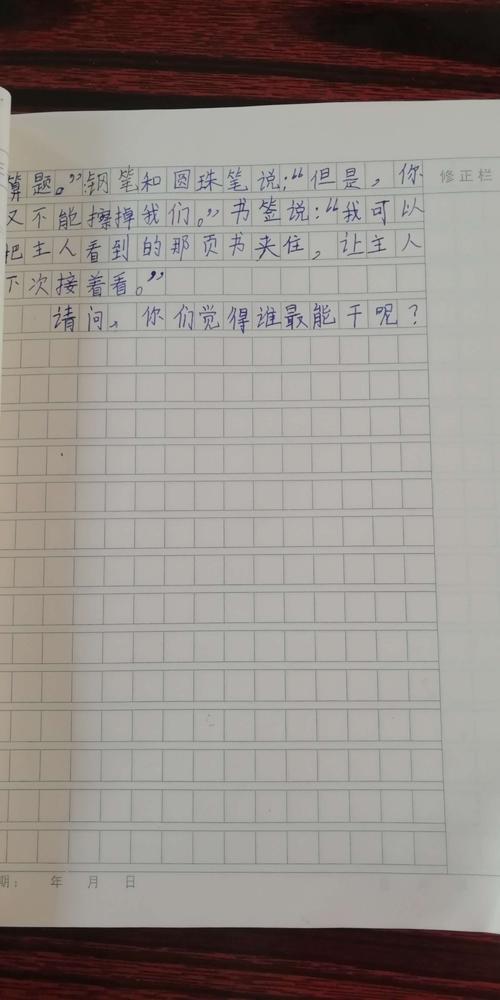 算题。”钢笔和圆珠笔说：“但是，你
又不能擦掉我们。”书签说：“我可以
把主人看到的那页书夹住，让主人
下次接着看。”
请问，你们觉得谁最能干呢？
修正栏
期： 年 月 日